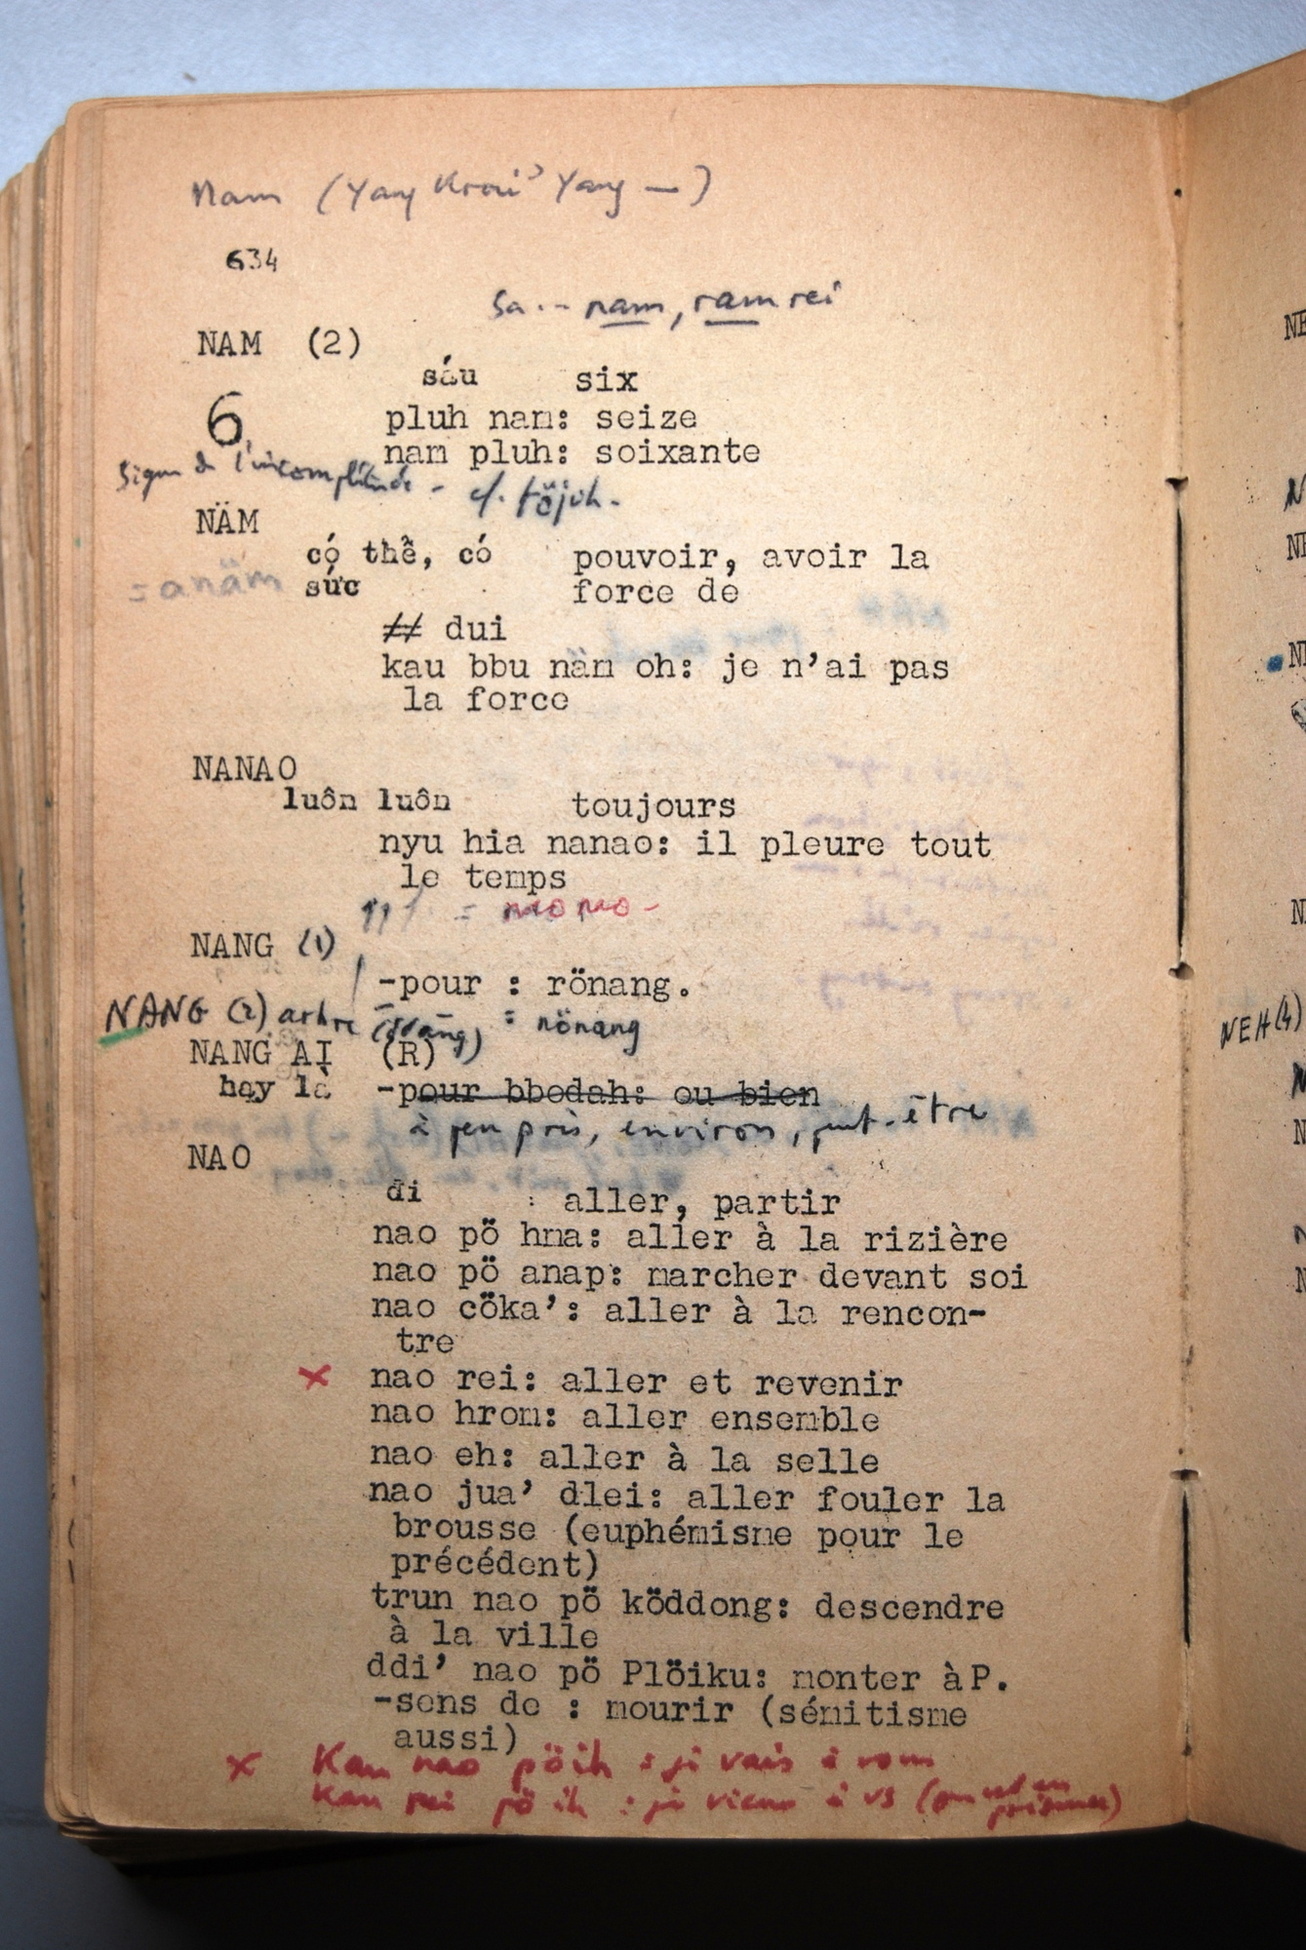 Nam (Yang Kroui' Yang —)
634
Sa -- nam, ram rei
NAM (2)
sáu six
6
pluh nam: seize
nam pluh: soixante
Signe de l'incomplétude - cf. töjuh -
NÄM
có thể, có pouvoir, avoir la
= anäm sức force de
≠ dui
kau bbu näm oh: je n'ai pas
la force
NANAO
luôn luôn toujours
nyu hia nanao: il pleure tout
le temps
= nao nao -
NANG (1)
-pour : rönang.
NANG (2) arbre = nönang
NANG AI (R)
hay là -pour bbodah: ou bien
à peu près, environ, peut-être
NAO
đi : aller, partir
nao pö hma: aller à la rizière
nao pö anap: marcher devant soi
nao cöka': aller à la rencon-
tre
x nao rei: aller et revenir
nao hrom: aller ensemble
nao eh: aller à la selle
nao jua' dlei: aller fouler la
brousse (euphémisme pour le
précédent)
trun nao pö köddong: descendre
à la ville
ddi' nao pö Plöiku: monter à P.
-sens de : mourir (sémitisme
aussi)
x Kau nao pö ih : je vais à vous
Kau rei pö ih : je viens à vs
NEH (4)